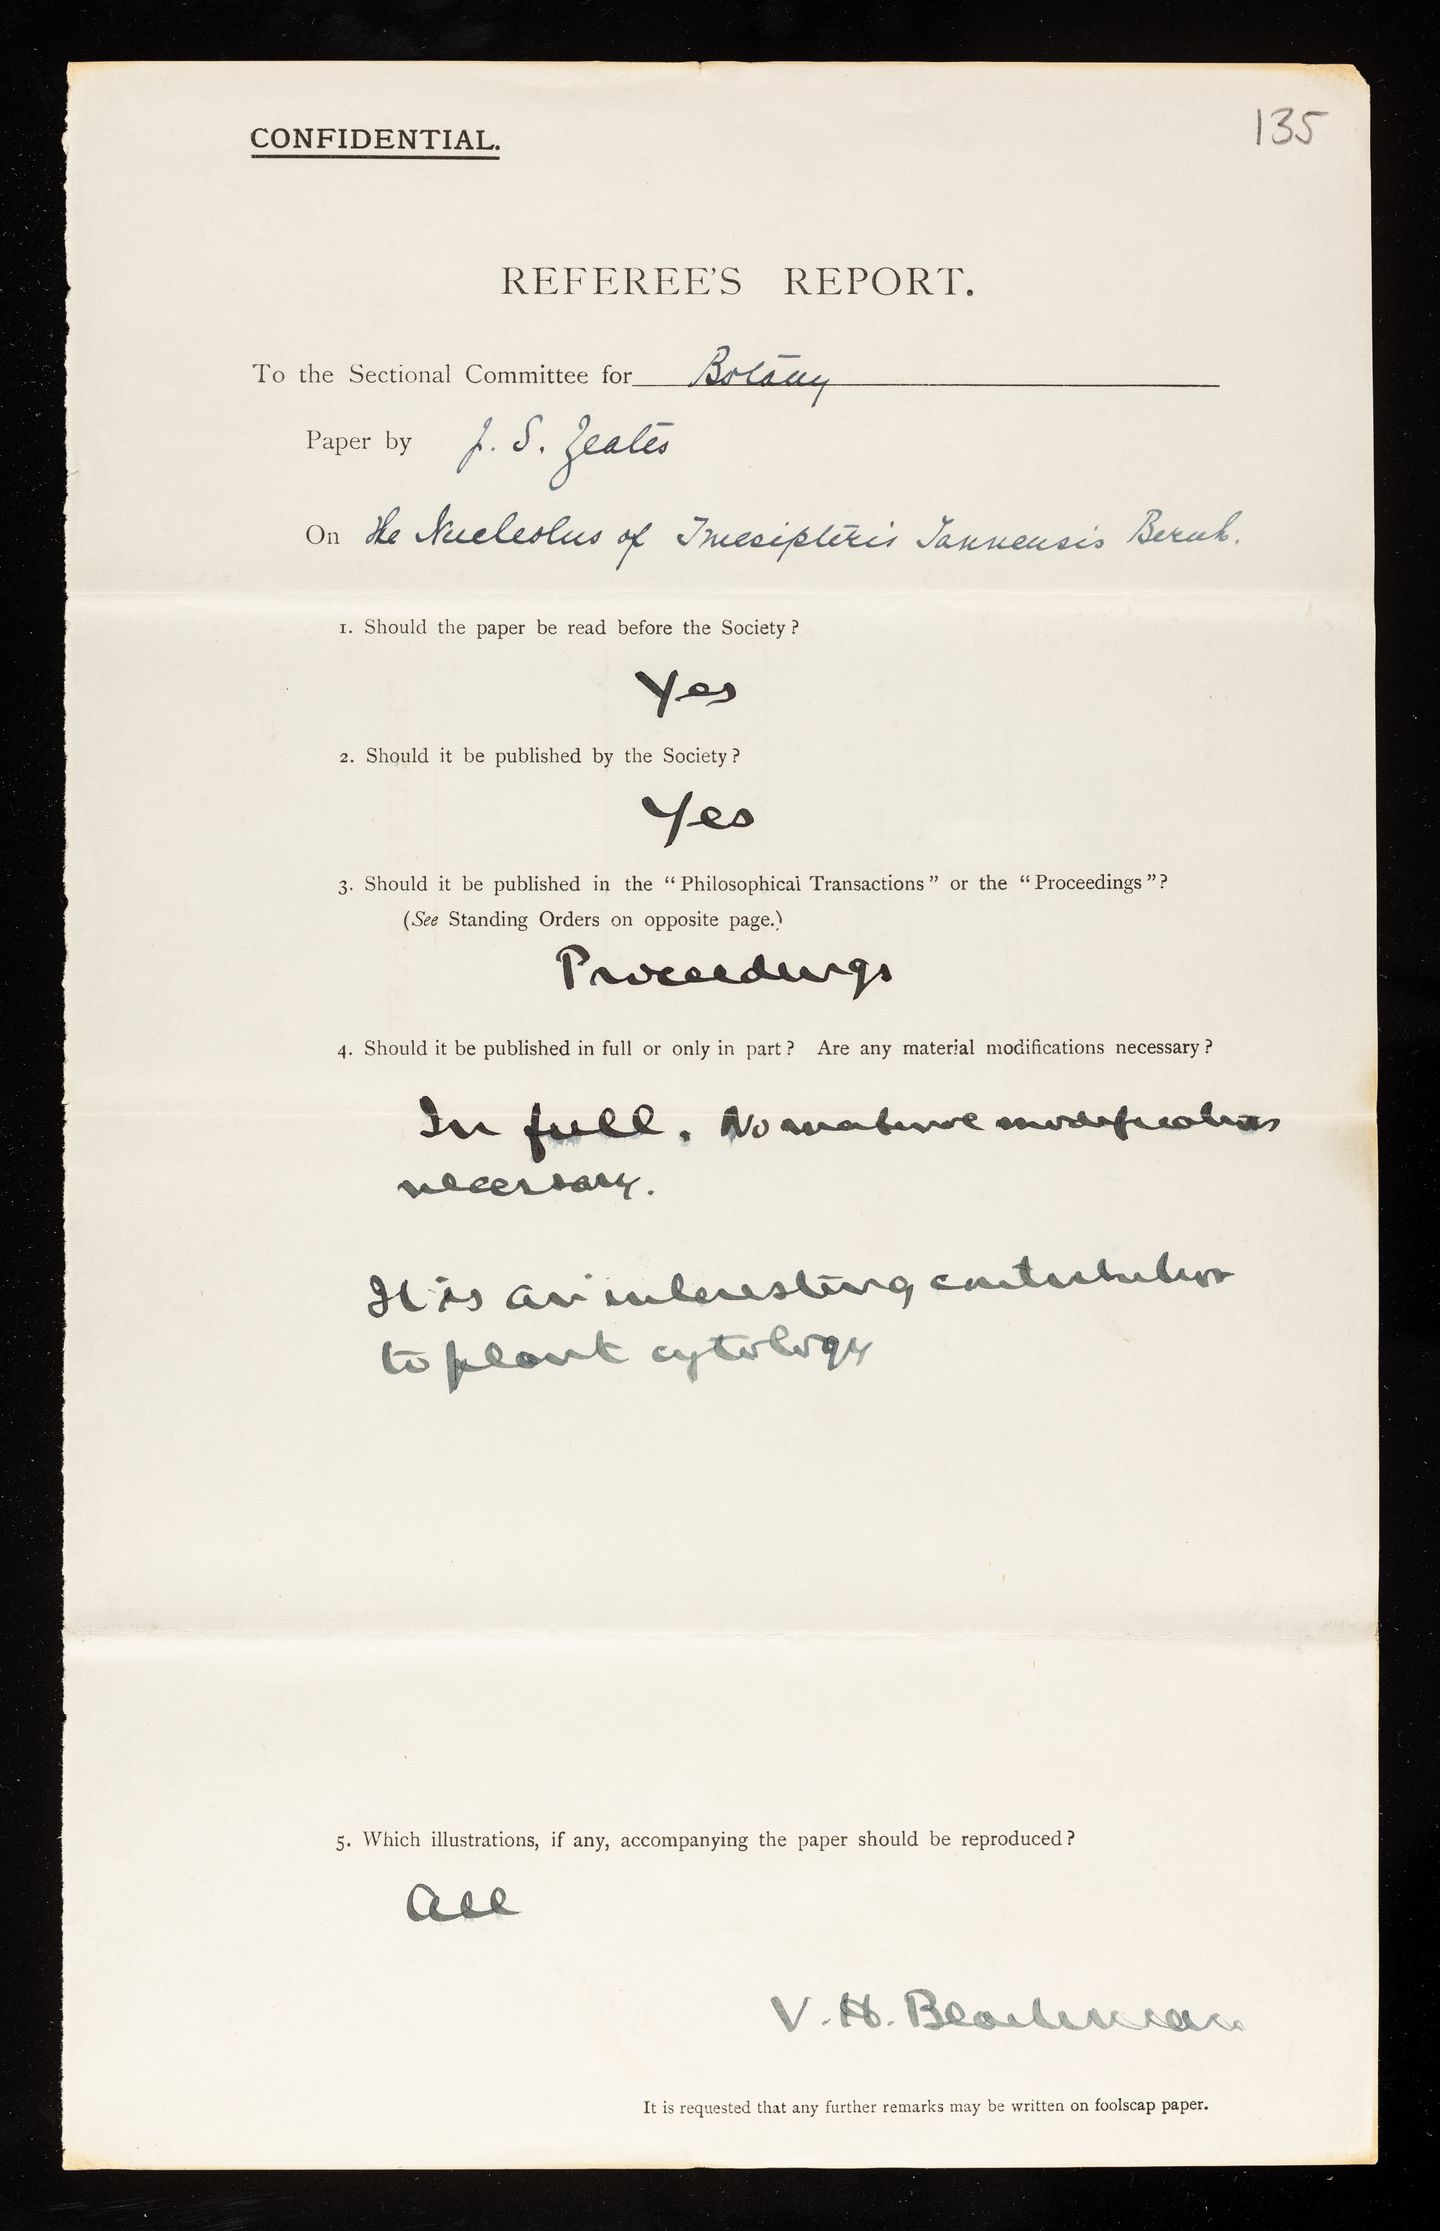 CONFIDENTIAL.
135
REFEREE'S REPORT.
To the Sectional Committee for Botany
Paper by J. S. Yeates
On The Nucleolus of Tmesipteris Tannensis Bernh.
1. Should the paper be read before the Society?
Yes
2. Should it be published by the Society?
Yes
3. Should it be published in the "Philosophical Transactions" or the "Proceedings"?
(See Standing Orders on opposite page.)
Proceedings
4. Should it be published in full or only in part? Are any material modifications necessary?
In full. No material modifications
necessary.
It is an interesting contribution
to plant cytology
5. Which illustrations, if any, accompanying the paper should be reproduced?
All
V. H. Blackman
It is requested that any further remarks may be written on foolscap paper.